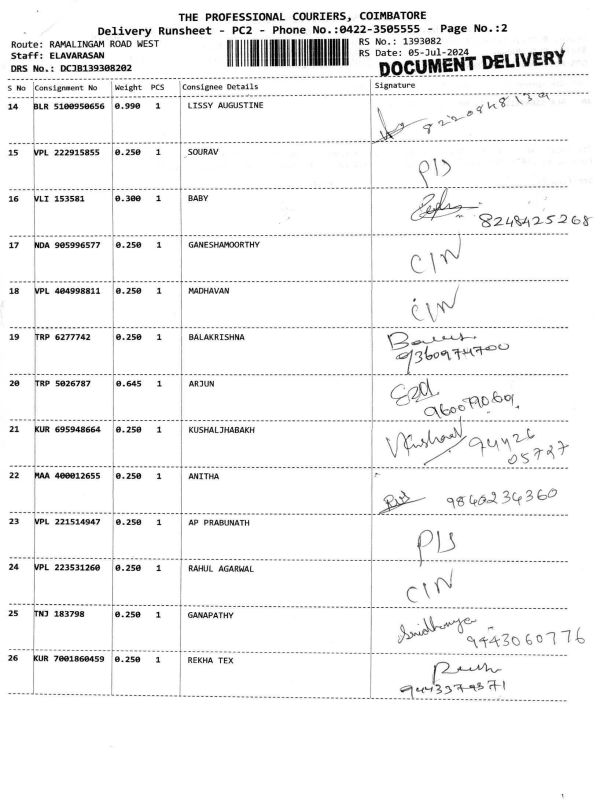 THE PROFESSIONAL COURIERS, COIMBATORE
Delivery Runsheet - PC2 - Phone No.:0422-3505555 - Page No.:2
Route: RAMALINGAM ROAD WEST RS No.: 1393082
Staff: ELAVARASAN RS Date: 05-Jul-2024
DRS No.: DCJB139308202 DOCUMENT DELIVERY
S No Consignment No Weight PCS Consignee Details Signature
14 BLR 5100950656 0.990 1 LISSY AUGUSTINE
15 VPL 222915855 0.250 1 SOURAV
16 VLI 153581 0.300 1 BABY
8248425268
17 NDA 905996577 0.250 1 GANESHAMOORTHY CIN
18 VPL 404998811 0.250 1 MADHAVAN CIN
19 TRP 6277742 0.250 1 BALAKRISHNA
9360974700
20 TRP 5026787 0.645 1 ARJUN
21 KUR 695948664 0.250 1 KUSHALJHABAKH Kushal 94426
05727
22 MAA 400012655 0.250 1 ANITHA 9840234360
23 VPL 221514947 0.250 1 AP PRABUNATH
24 VPL 223531260 0.250 1 RAHUL AGARWAL CIN
25 TNJ 183798 0.250 1 GANAPATHY
9443060776
26 KUR 7001860459 0.250 1 REKHA TEX
9443379371